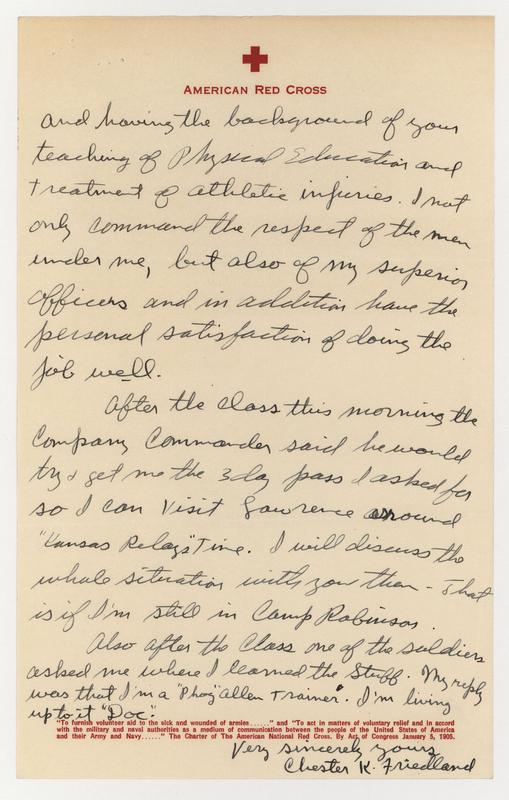 AMERICAN RED CROSS
and having the background of your
teaching of Physical Education and
treatment of athletic injuries. I not
only command the respect of the men
under me, but also of my superior
officers and in addition have the
personal satisfaction of doing the
job well.
After the class this morning the
Company Commander said he would
try & get me the 3 day pass I asked for
so I can visit Lawrence around
"Kansas Relays" Time. I will discuss the
whole situation with you then - That
is if I'm still in Camp Robinson.
Also after the Class one of the soldiers
asked me where I learned the stuff. My reply
was that I'm a "Phog" Allen Trainer". I'm living
up to it "Doc".
"To furnish volunteer aid to the sick and wounded of armies......" and "To act in matters of voluntary relief and in accord
with the military and naval authorities as a medium of communication between the people of the United States of America
and their Army and Navy......" The Charter of The American National Red Cross. By Act of Congress January 5, 1905.
Very sincerely yours,
Chester K. Friedland